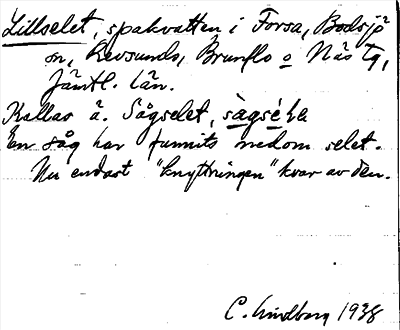 Lillselet, spakvatten i Forsa, Bodsjö
sn, Revsunds, Brunflo o Näs tg,
Jämtl. län.
Kallas ä. Sågselet, sàgséLe
En såg har funnits nedom selet.
Nu endast "knyttningen" kvar av den.
C. Lindberg 1938